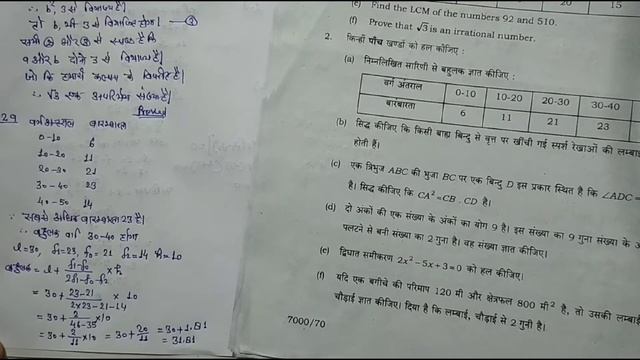 ∴ b, 3 से विभाज्य है।
तो b, भी 3 से विभाजित होगा। — ②
समी ① और ② से स्पष्ट है कि
a और b दोनों 3 से विभाज्य है।
∴ √3 एक अपरिमेय संख्या है।
Proved
29 वर्ग अन्तराल बारम्बारता
0-10 6
10-20 11
20-30 21
30-40 23
40-50 14
∵ सबसे अधिक बारम्बारता 23 है।
∴ बहुलक वर्ग 30-40 होगा
l=30, f₁=23, f₀=21 f₂=14 h=10
बहुलक = l + f₁-f₀ / 2f₁-f₀-f₂ × h
= 30 + 23-21 / 2×23-21-14 × 10
= 30 + 2 / 46-35 ×10
= 30 + 2/11 ×10 = 30 + 20/11 = 30+1.81
= 31.81
15 20 15
(e) Find the LCM of the numbers 92 and 510.
(f) Prove that √3 is an irrational number.
2. किन्हीं पाँच खण्डों को हल कीजिए :
(a) निम्नलिखित सारिणी से बहुलक ज्ञात कीजिए :
वर्ग अंतराल 0-10 10-20 20-30 30-40
बारंबारता 6 11 21 23
(b) सिद्ध कीजिए कि किसी बाह्य बिन्दु से वृत्त पर खींची गई स्पर्श रेखाओं की लम्बाई
होती हैं।
(c) एक त्रिभुज ABC की भुजा BC पर एक बिन्दु D इस प्रकार स्थित है कि ∠ADC =
है। सिद्ध कीजिए कि CA² = CB . CD है।
(d) दो अंकों की एक संख्या के अंकों का योग 9 है। इस संख्या का 9 गुना संख्या के अं
पलटने से बनी संख्या का 2 गुना है। वह संख्या ज्ञात कीजिए।
(e) द्विघात समीकरण 2x² – 5x + 3 = 0 को हल कीजिए।
(f) यदि एक बगीचे की परिमाप 120 मी और क्षेत्रफल 800 मी² है, तो उसकी लम्बाई
चौड़ाई ज्ञात कीजिए। दिया है कि लम्बाई, चौड़ाई से 2 गुनी है।
7000/70